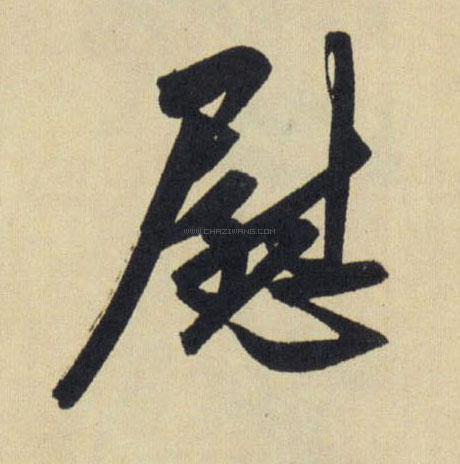 慰
WWW.CHAZIWANG.COM